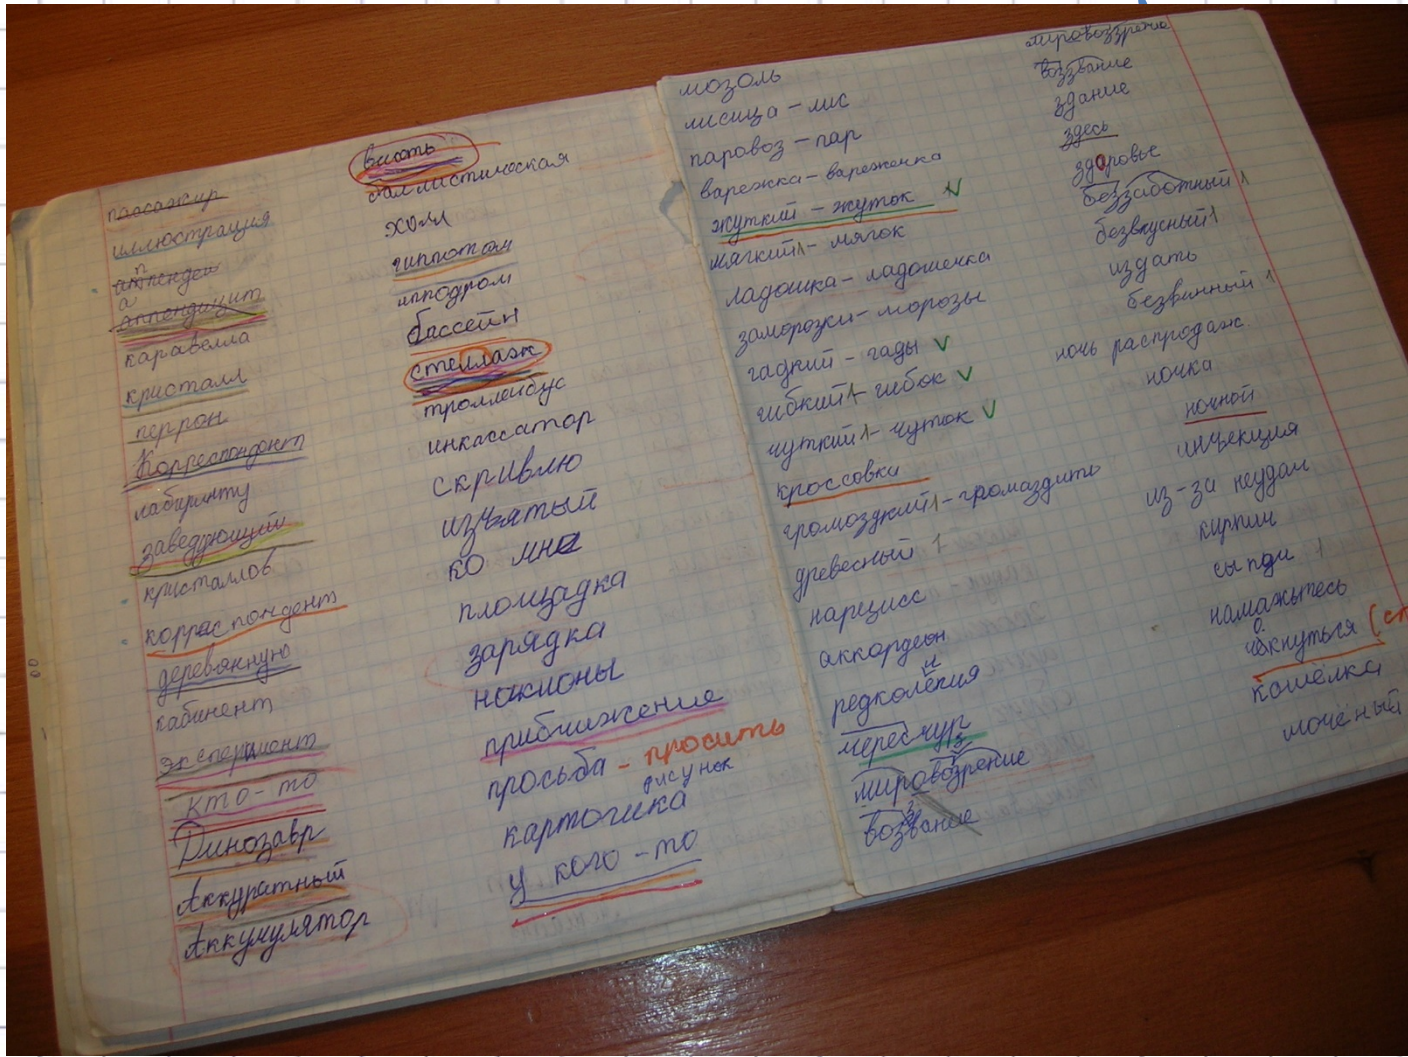 пассажир
иллюстрация
аппендицит
каравелла
кристалл
перрон
Корреспондент
лабиринту
заведующий
кристаллов
корреспондент
деревянную
кабинент
эксперимент
кто-то
Динозавр
Аккуратный
Аккумулятор
баллистическая
холл
гиппотам
ипподром
бассейн
стеллаж
троллейбус
инкассатор
скривлю
изъятый
ко мне
площадка
зарядка
наклоны
приближение
просьба - просить
рисунок
картошка
у кого-то
мозоль
лисица - лис
паровоз - пар
варежка - вареженка
жуткий - жуток V
мягкий 1 - мягок
ладошка - ладошенка
заморозки - морозы
гадкий - гады V
гибкий 1 - гибок V
чуткий 1 - чуток V
кроссовки
громоздкий 1 - громаздить
древесный 1
нарцисс
аккордеон
редколегия
и
чересчур
мировозрение
з
возвание
з
мировоззрение
воззвание
здание
здесь
здоровье
беззаботный 1
безвкусный 1
издать
безвинный 1
ночь распродаж.
ночка
ночной
инъекция
из-за неудач
кирпич
сыпди 1
намажьтесь
чокнуться
кошёлка
мочёный